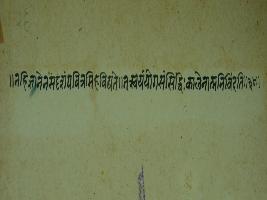 ॥न हि ज्ञानेन सदृशं पवित्रमिह विद्यते॥तत्स्वयं योगसंसिद्धः कालेनात्मनि विंदति॥३८॥